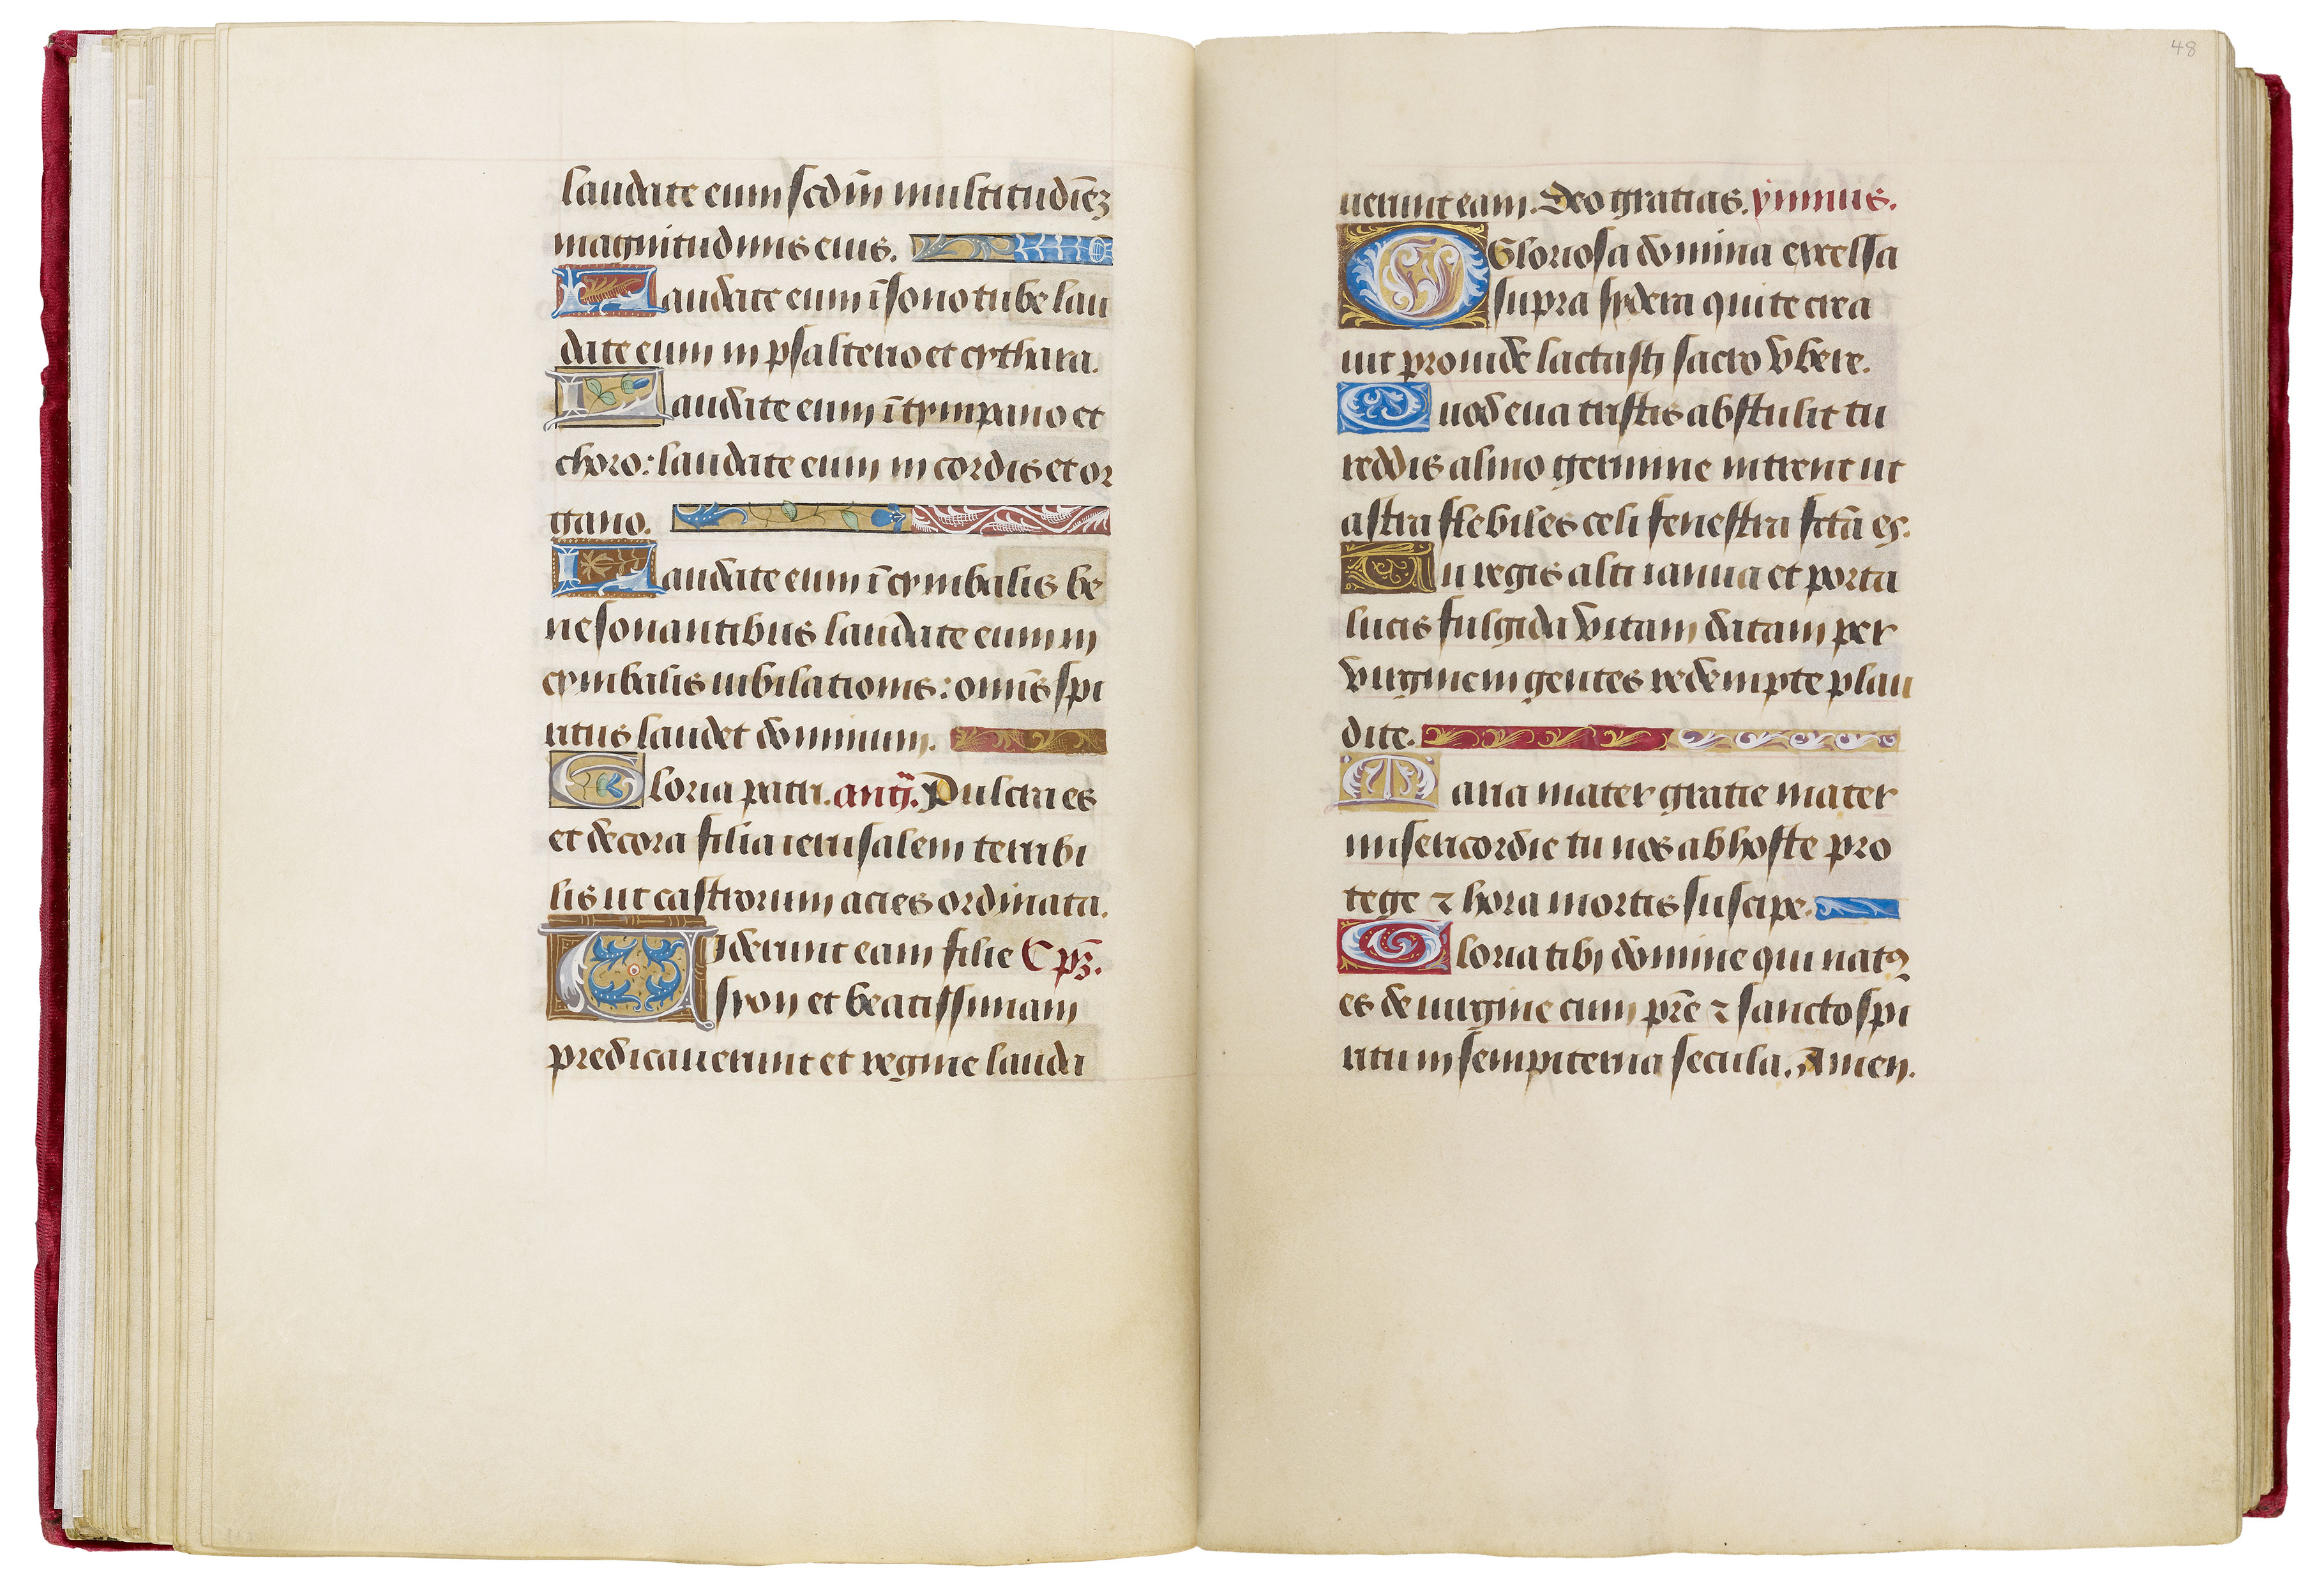 laudate eum scdm̄ multitudīeʒ
magnitudinis eius.
Laudate eum ī sono tube lau
date eum in psalterio et cythara.
Laudate eum ī tympano et
choro: laudate eum in cordis et or
gano.
Laudate eum ī cymbalis be
ne sonantibus laudate eum in
cymbalis iubilationis: omīs spi
ritus laudet dominum.
Gloria patri. antī. Pulcra es
et decora filia ierusalem terribi
lis ut castrorum acies ordinata.
Viderunt eam filie C pʒ̄.
syon et beatissimam
predicauerunt et regine lauda
48
uerunt eam. Deo gratias. ymnus.
O Gloriosa domina excelsa
supra sydera qui te crea
uit prouide lactasti sacro vbere.
Quod eua tristis abstulit tu
reddis almo germine intrent ut
astra flebiles celi fenestra fctā es.
Tu regis alti ianua et porta
lucis fulgida vitam datam per
virginem gentes redempte plau
dite.
Maria mater gratie mater
misericordie tu nos ab hoste pro
tege ⁊ hora mortis suscipe.
Gloria tibi domine qui natꝰ
es de uirgine cum pr̄e ⁊ sancto spi
ritu in sempiterna secula. Amen.